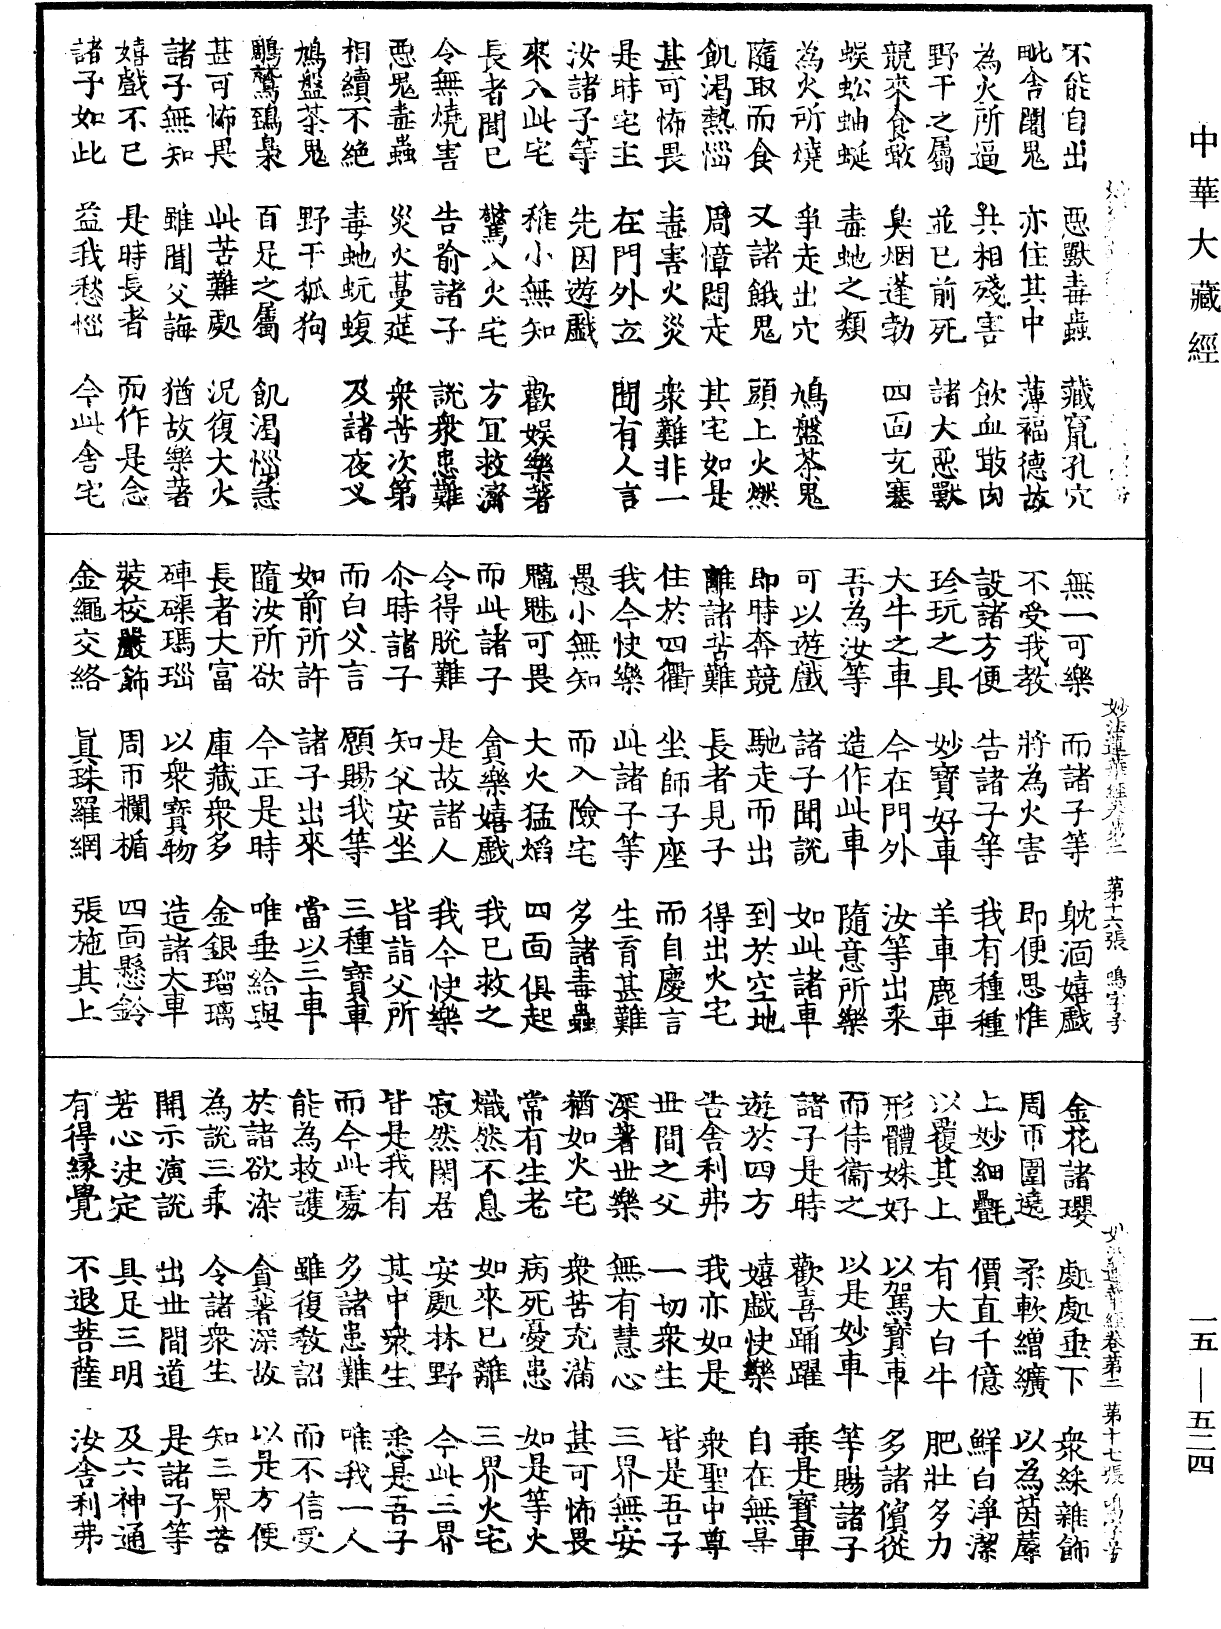 中華大藏經
不能自出　惡獸毒蟲　藏竄孔穴
毗舍闍鬼　亦住其中　薄福德故
為火所逼　共相殘害　飲血噉肉
野干之屬　並已前死　諸大惡獸
競來食噉　臭烟蓬勃　四面充塞
蜈蚣蚰蜒　毒虵之類
為火所燒　爭走出穴　鳩盤茶鬼
隨取而食　又諸餓鬼　頭上火燃
飢渴熱惱　周慞悶走　其宅如是
甚可怖畏　毒害火災　衆難非一
是時宅主　在門外立　聞有人言
汝諸子等　先因遊戲
來入此宅　稚小無知　歡娛樂著
長者聞已　驚入火宅　方冝救濟
令無燒害　告喻諸子　說衆患難
惡鬼毒蟲　災火蔓莚　衆苦次第
相續不絕　毒虵蚖蝮　及諸夜叉
鳩盤茶鬼　野干狐狗
鵰鷲鵄梟　百足之屬　飢渴惱急
甚可怖畏　此苦難處　況復大火
諸子無知　雖聞父誨　猶故樂著
嬉戲不已　是時長者　而作是念
諸子如此　益我愁惱　今此舍宅
妙法蓮華經　第二　第十六張　鳴字号
無一可樂　而諸子等　躭湎嬉戲
不受我教　將為火害　即便思惟
設諸方便　告諸子等　我有種種
珍玩之具　妙寶好車　羊車鹿車
大牛之車　今在門外　汝等出来
吾為汝等　造作此車　隨意所樂
可以遊戲　諸子聞說　如此諸車
即時奔競　馳走而出　到於空地
離諸苦難　長者見子　得出火宅
住於四衢　坐師子座　而自慶言
我今快樂　此諸子等　生育甚難
愚小無知　而入險宅　多諸毒蟲
魑魅可畏　大火猛焰　四面俱起
而此諸子　貪樂嬉戲　我已救之
令得脫難　是故諸人　我今快樂
尒時諸子　知父安坐　皆詣父所
而白父言　願賜我等　三種寶車
如前所許　諸子出來　當以三車
隨汝所欲　今正是時　唯垂給與
長者大富　庫藏衆多　金銀瑠璃
硨磲瑪瑙　以衆寶物　造諸大車
裝校嚴飾　周帀欄楯　四面懸鈴
金繩交絡　真珠羅網　張施其上
妙法蓮華經卷第二　第十七張　鳴字号
金花諸瓔　處處垂下　衆綵雜飾
周帀圍遶　柔軟繒纊　以為茵蓐
上妙細㲲　價直千億　鮮白淨潔
以覆其上　有大白牛　肥壯多力
形體姝好　以駕寶車　多諸儐從
而侍衞之　以是妙車　等賜諸子
諸子是時　歡喜踊躍　乗是寶車
遊於四方　嬉戲快樂　自在無㝵
告舍利弗　我亦如是　衆聖中尊
世間之父　一切衆生　皆是吾子
深著世樂　無有慧心　三界無安
猶如火宅　衆苦充滿　甚可怖畏
常有生老　病死憂患　如是等火
熾然不息　如來已離　三界火宅
寂然閑居　安處林野　今此三界
皆是我有　其中衆生　悉是吾子
而今此處　多諸患難　唯我一人
能為救護　雖復教詔　而不信受
於諸欲染　貪著深故　以是方便
為說三乗　令諸衆生　知三界苦
開示演說　出世間道　是諸子等
若心決定　具足三明　及六神通
有得緣覺　不退菩薩　汝舍利弗
一五—五二四